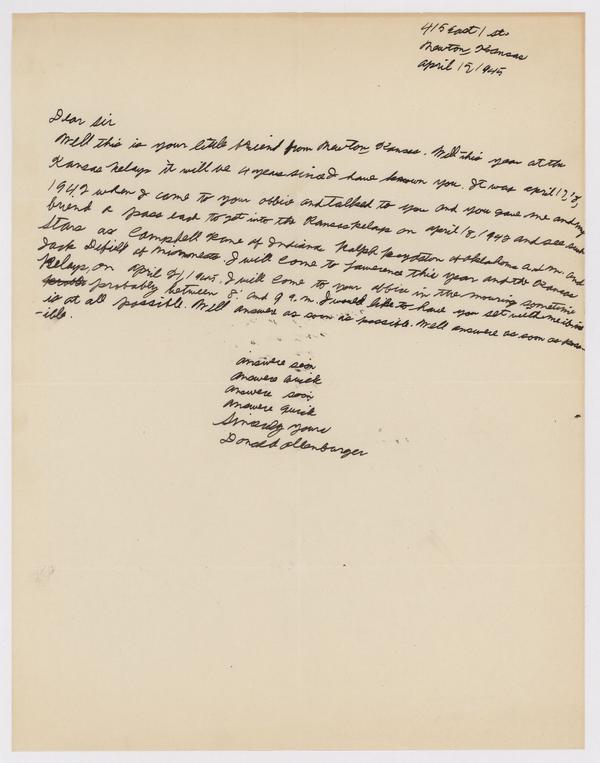 415 East 1 st.
Newton, Kansas
April 15, 1945
Dear Sir
Well this is your little friend from Newton, Kansas. Well this year at the
Kansas Relays it will be 4 years since I have known you. It was April
1942 when I came to your offive and talked to you and you gave me and my
friend a pass each to get into the Kansas Relays on April 18, 1942 and see such
stars as Campbell Kane of Indiana Ralph of Oklahoma A. and M. and
Jack Defield of Minnesota I will come to Lawerence this year and the Kansas
Relays, on April 21, 1945. I will come to your offive in the mouring sometime
probably between 8. and 9 a.m. I would like to have you set with me if this
is at all possible. Well answer as soon as possible. Well answere as soon as poss-
-ible.
answere soon
answere quick
answere soon
answere quick
Sincerly yours
Donald Ollenburger